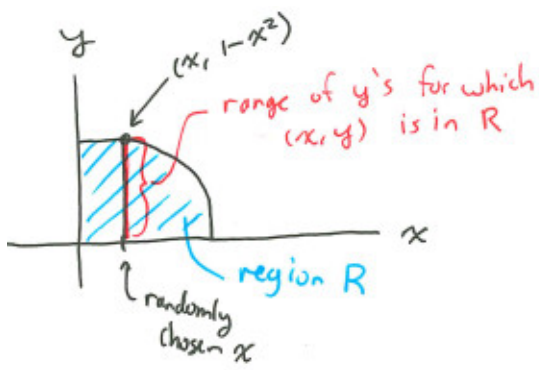 y
(x, 1-x²)
range of y's for which
(x,y) is in R
x
region R
randomly
chosen x